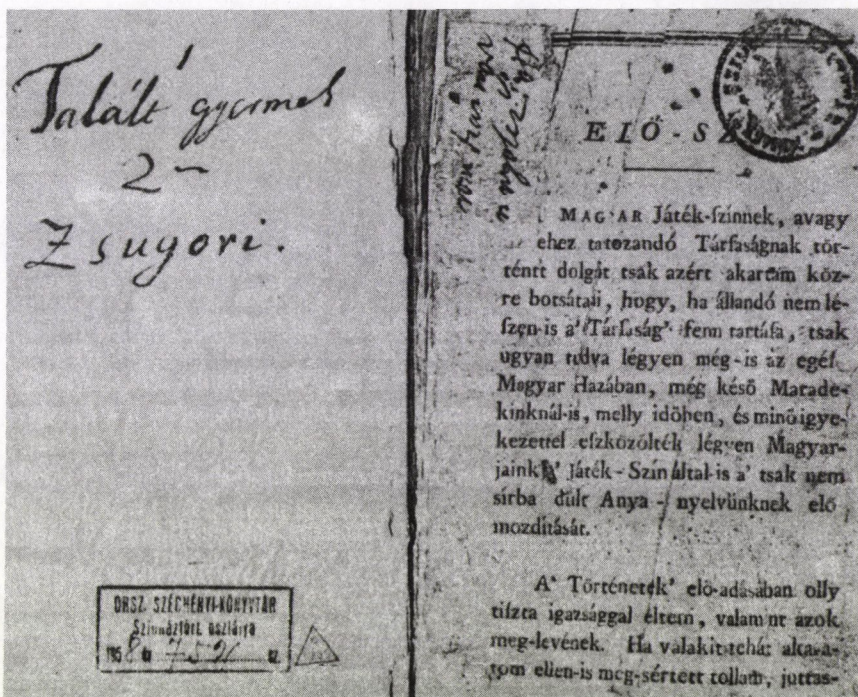 Talált gyermek
2
Zsugori.
ORSZ. SZÉCHÉNYI-KÖNYVTÁR
Színháztört. osztálya
ELŐ-S
MAGYAR Játék-ſzínnek, avagy
ehez tatozandó Társaságnak tör-
téntt dolgát tsak azért akartam köz-
re botsátaii, hogy, ha állandó nem lé-
ſzen-is a' Társaság' fenn tartáſa, tsak
ugyan tudva légyen még-is az egéſ.
Magyar Hazában, még késő Marade-
kinknál-is, melly időben, és minő igye-
kezettel eſzközölték légyen Magyar-
jaink a' Játék-Szín által-is a' tsak nem
sírba dült Anya-nyelvünknek elő
mozdítását.
A' Történeték' elő-adásában olly
tiſzta igazsággal éltem, valam nt azok
meg-levének. Ha valakit tehát akara-
tom ellen-is meg-sértett tollam, juttas-